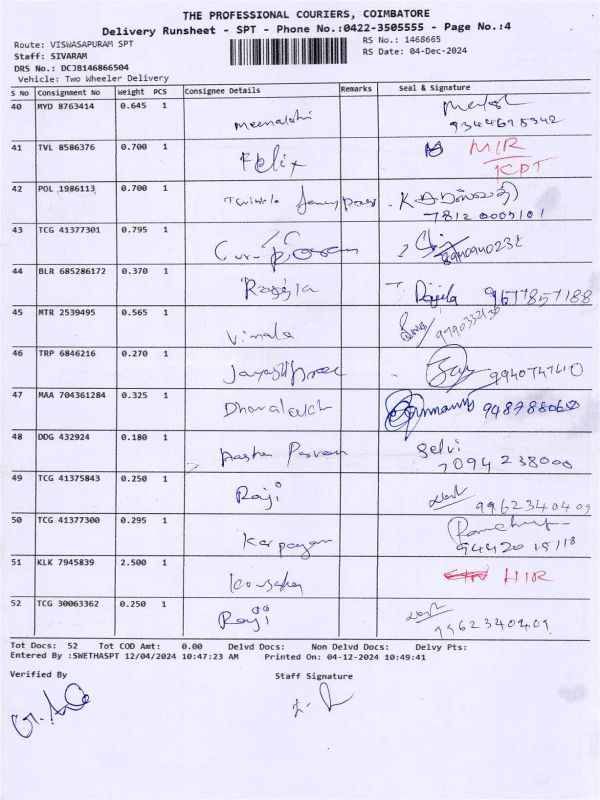 THE PROFESSIONAL COURIERS, COIMBATORE
Delivery Runsheet - SPT - Phone No.:0422-3505555 - Page No.:4
Route: VISWASAPURAM SPT RS No.: 1468665
Staff: SIVARAM RS Date: 04-Dec-2024
DRS No.: DCJB146866504
Vehicle: Two Wheeler Delivery
S No Consignment No Weight PCS Consignee Details Remarks Seal & Signature
40 MYD 8763414 0.645 1 Meenakshi
9344675342
41 TVL 8586376 0.700 1 Felix M/R
ICPT
42 POL 1986113 0.700 1 Twinkle
78120005101
43 TCG 41377301 0.795 1
8940940232
44 BLR 685286172 0.370 1 Rajila Rajila 9677857188
45 MTR 2539495 0.565 1 Vimala 9790332130
46 TRP 6846216 0.270 1 9940747410
47 MAA 704361284 0.325 1
48 DDG 432924 0.180 1 Aasha Selvi
7094238000
49 TCG 41375843 0.250 1 Raji
9962340409
50 TCG 41377300 0.295 1 Karpagam
51 KLK 7945839 2.500 1
52 TCG 30063362 0.250 1 Raji
9962340409
Tot Docs: 52 Tot COD Amt: 0.00 Delvd Docs: Non Delvd Docs: Delvy Pts:
Entered By :SWETHASPT 12/04/2024 10:47:23 AM Printed On: 04-12-2024 10:49:41
Verified By Staff Signature